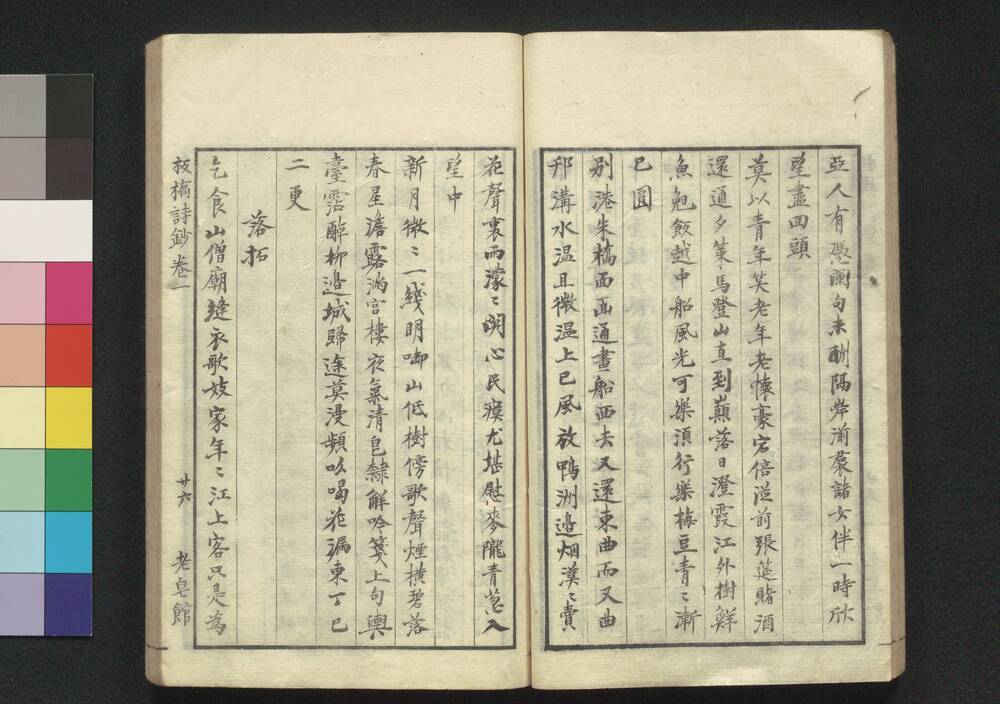 亞人有憑闌句未酬隔岸湔裳諸女伴一時欣
望盡回頭
莫以青年笑老年老懷豪宕倍從前張筵賭酒
還通夕策馬登山直到巔落日澄霞江外樹鮮
魚飽飯越中船風光可樂須行樂梅豆青〻漸
已圓
別港朱橋面面通畫船西去又還東曲而又曲
邗溝水温且微温上巳風放鴨洲邉烟漠〻賣
花聲裏雨濛〻関心民瘼尤堪慰麥隴青葱入
望中
新月微〻一綫明啣山低樹傍歌聲煙橫碧落
春星澹露滿宫樓夜氣清皂隸解吟箋上句輿
臺霑醉柳邉城歸途莫漫頻吆喝花漏東丁已
二更
落拓
乞食山僧廟縫衣歌妓家年〻江上客只是為
板橋詩鈔卷一 廿六 老皂館